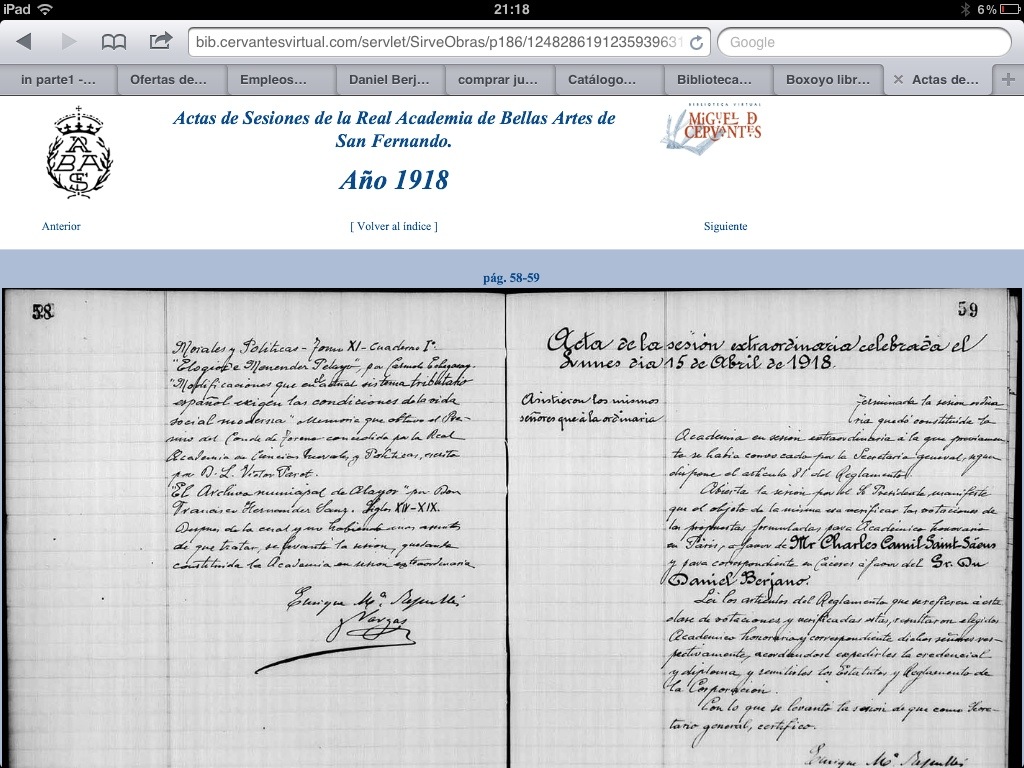 iPad
21:18
6%
bib.cervantesvirtual.com/servlet/SirveObras/p186/1248286191235939631
Google
in parte1 -...
Ofertas de...
Empleos...
Daniel Berj...
comprar ju...
Catálogo...
Biblioteca...
Boxoyo libr...
Actas de...
ABAS
Actas de Sesiones de la Real Academia de Bellas Artes de
San Fernando.
Año 1918
BIBLIOTECA VIRTUAL
MIGUEL D
CERVANTES
Anterior
[ Volver al índice ]
Siguiente
pág. 58-59
58
Morales y Políticas - Tomo XI - Cuaderno 1º.
"Elogio de Menendez Pelayo", por Carmelo Echegaray.
"Modificaciones que en el actual sistema tributario
español exigen las condiciones de la vida
social moderna" Memoria que obtuvo el Pre-
mio del Conde de Toreno concedido por la Real
Academia de Ciencias Morales y Políticas, escrita
por D. L. Victor Paret.
"El Archivo municipal de Alayor" por Don
Francisco Hernandez Sanz. Siglos XIV-XIX.
Despues de lo cual y no habiendo mas asuntos
de que tratar, se levantó la sesion, quedando
constituida la Academia en sesion extraordinaria
Enrique Mª. Repullés
y Vargas
59
Acta de la sesión extraordinaria celebrada el
Lunes dia 15 de Abril de 1918.
Asistieron los mismos
señores que á la ordinaria
Terminada la sesion ordina-
ria quedó constituida la
Academia en sesion extraordinaria á la que previamen-
te se habia convocado por la Secretaria general, segun
dispone el artículo 81 del Reglamento.
Abierta la sesion por el Sr. Presidente, manifestó
que el objeto de la misma era verificar las votaciones de
las propuestas formuladas para Académico honorario
en París, a favor de Mr Charles Camil Saint-Säens
y para correspondiente en Cáceres á favor del Sr. Dn
Daniel Berjano.
Leí los artículos del Reglamento que se refieren á esta
clase de votaciones y verificadas estas, resultaron elegidos
Académico honorario y correspondiente dichos señores res-
pectivamente, acordandose expedirles la credencial
y diploma y remitirles los Estatutos y Reglamento de
la Corporación.
Con lo que se levantó la sesion de que como Secre-
tario general, certifico.
Enrique Mª Repullés